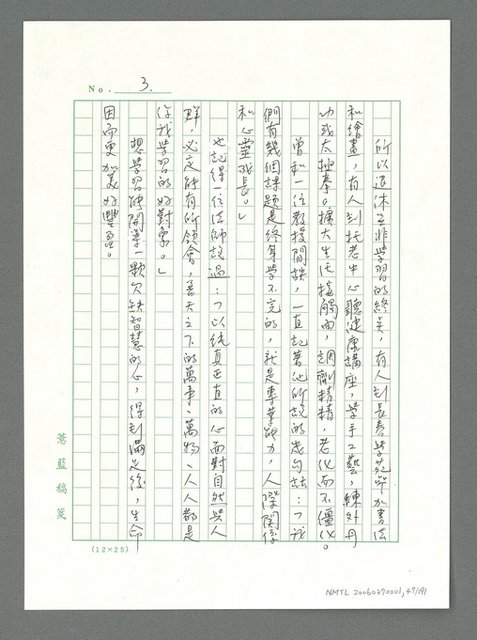 No. 3.
所以退休並非學習的終美，有人到長春學苑參加書法
和繪畫，有人到托老中心聽健康講座，學手工藝，練外丹
功或太極拳。擴大生活接觸面，調劑精精，老化而不僵化。
曾和一位教授閒談，一直記著他所說的幾句話：「我
們有幾個課題是終身學不完的，就是專業能力，人際關係
和心靈成長。」
也記得一位法師說過：「以純真正直的心面對自然與人
群，必定能有所領會，普天之下的萬事、萬物、人人都是
你我學習的好對象。」
想學習能開導一顆欠缺智慧的心，得到滿足後，生命
因而更加美好豐盈。
薔藍稿箋
(12×25)
NMTL 20060270001, 47/191